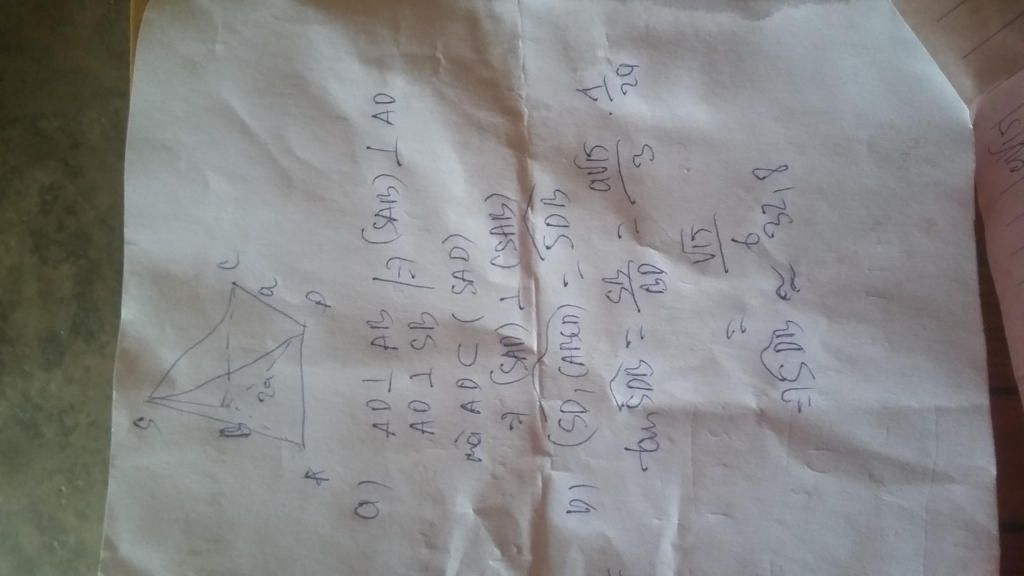 S
B
C
2a
a
A
D
a) AD ⊥ AB
AD ⊥ SB } => (SAB) ⊥ AD
mà AD ⊂ (SAD)
=> (SAD) ⊥ (SAB)
b) (SD, (ABCD)) = SDB
tan SDB = SB/BD = a√15/3 . 1/2a
= √15/6
=> SDB ≈ 32,8